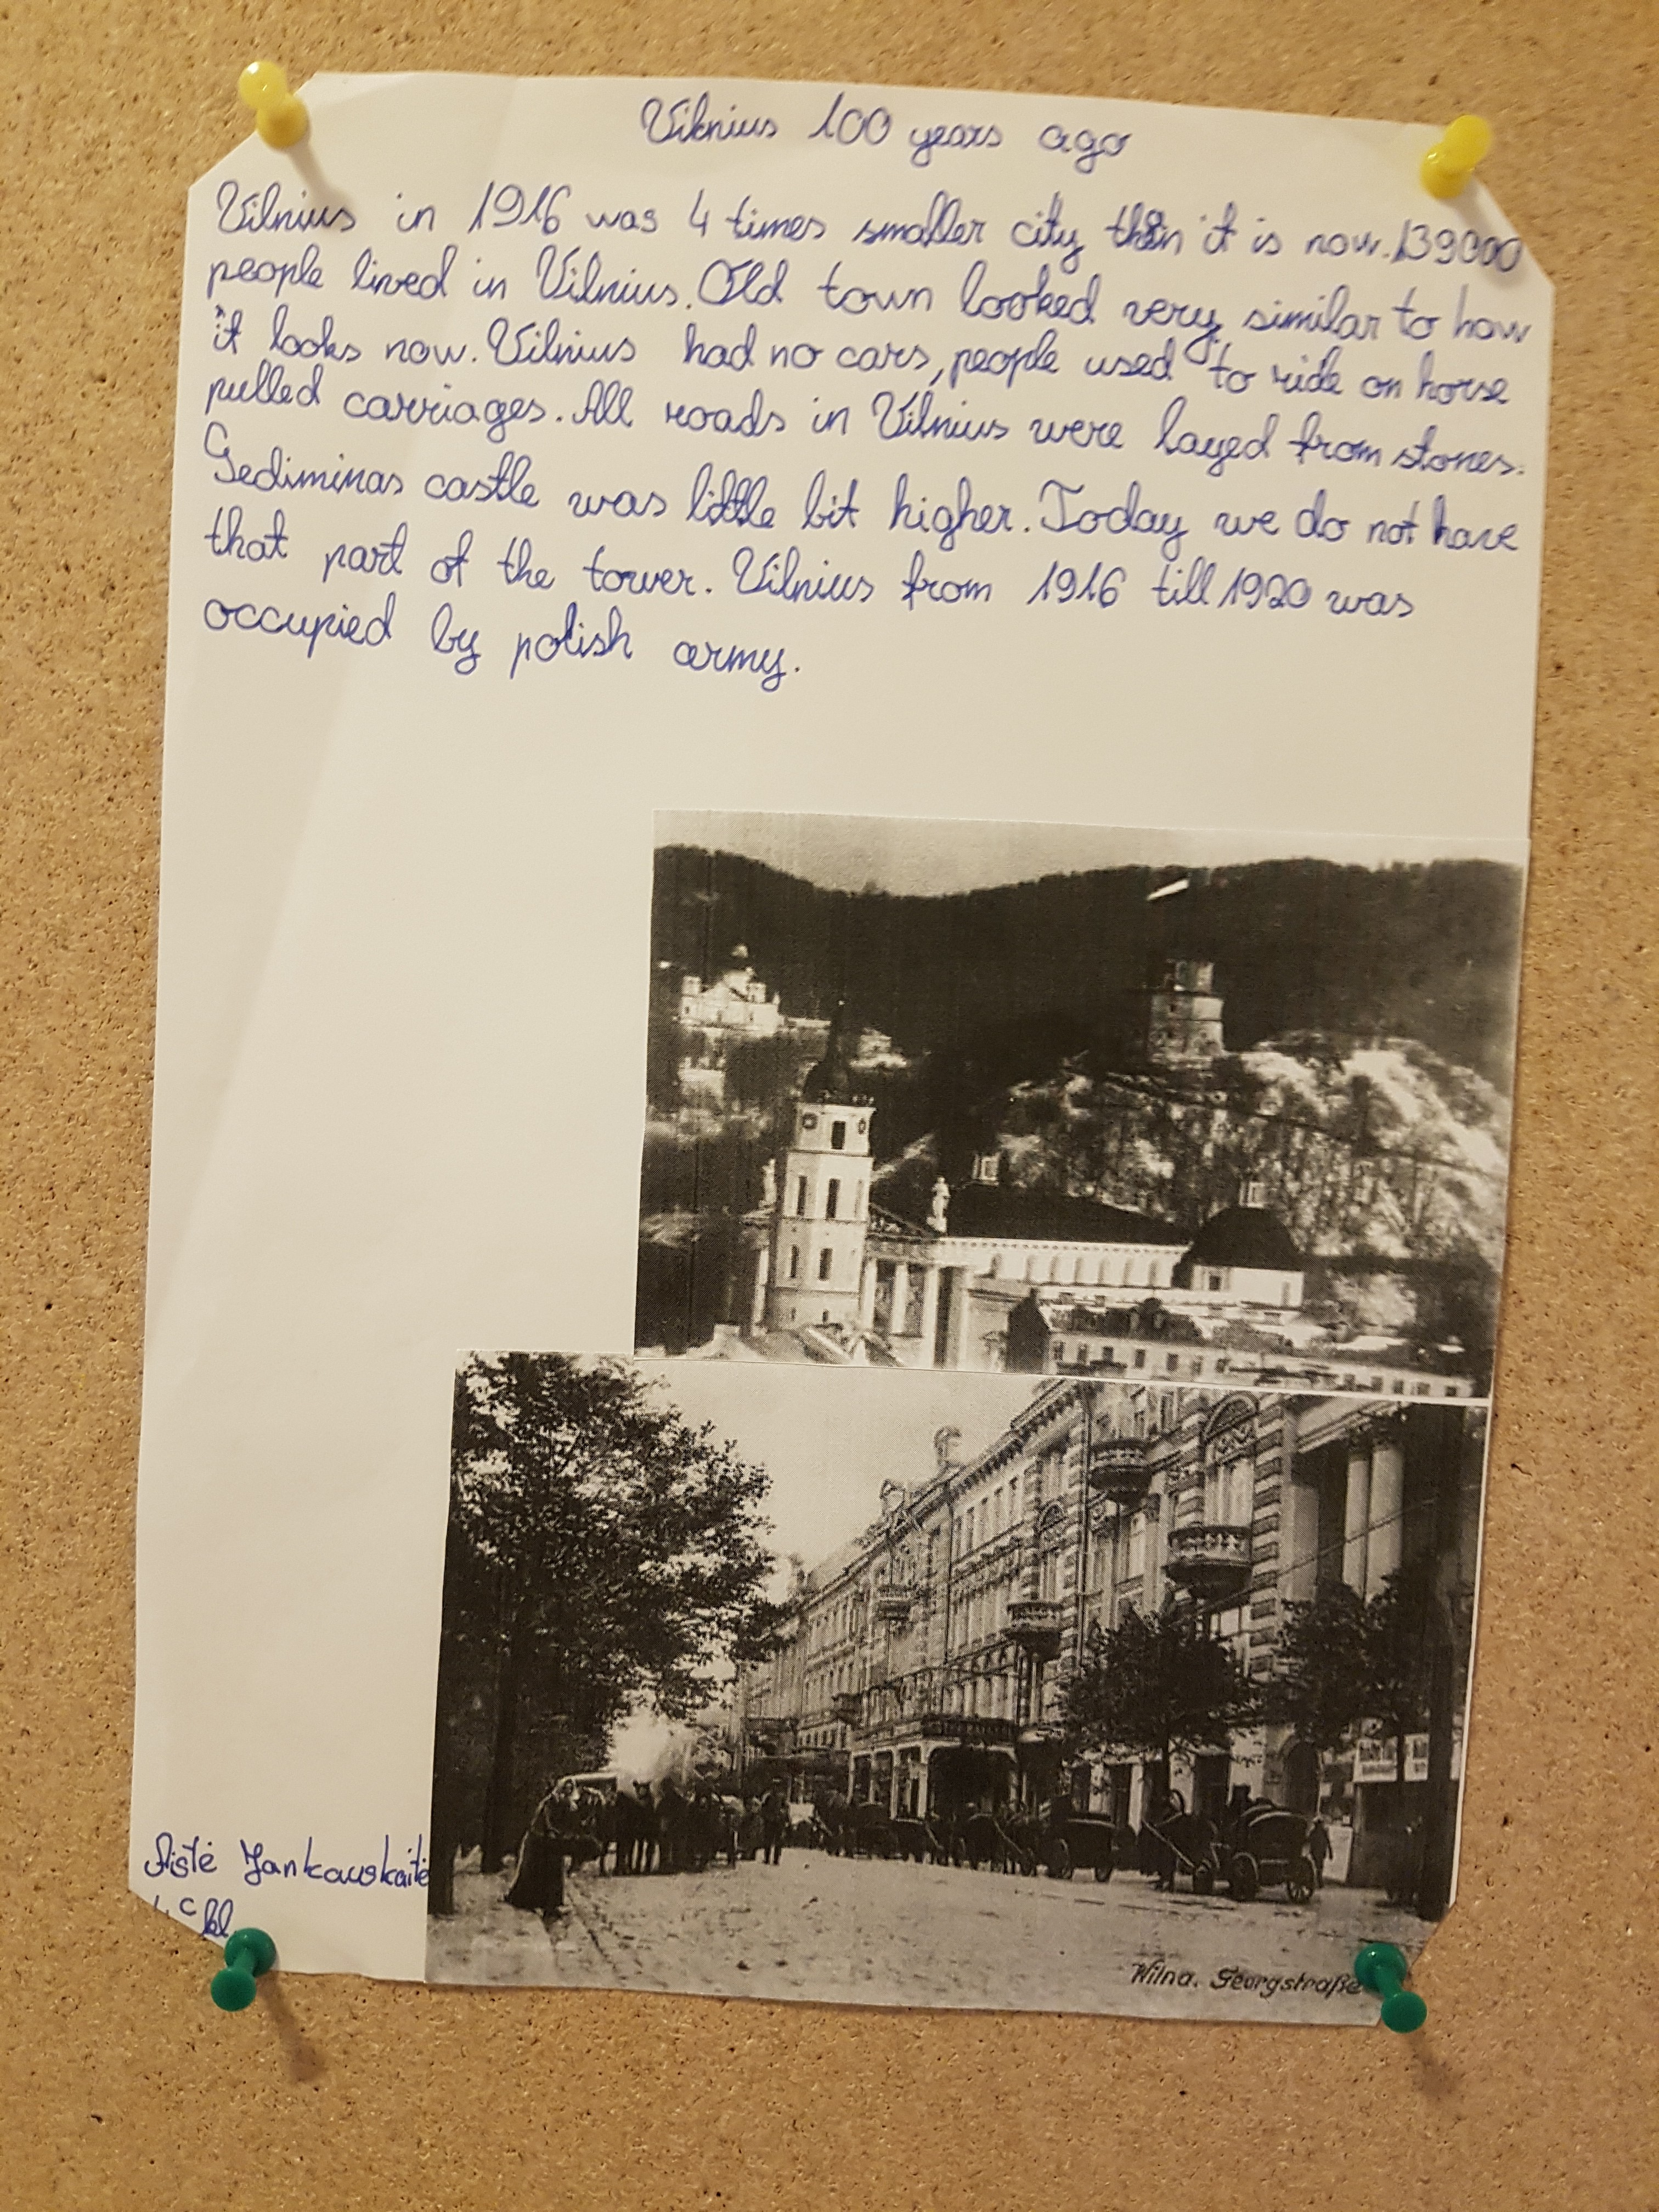 Vilnius 100 years ago
Vilnius in 1916 was 4 times smaller city than it is now. 139000
people lived in Vilnius. Old town looked very similar to how
it looks now. Vilnius had no cars, people used to ride on horse
pulled carriages. All roads in Vilnius were layed from stones.
Gediminas castle was little bit higher. Today we do not have
that part of the tower. Vilnius from 1916 till 1920 was
occupied by polish army.
Aistė Jankauskaitė
4 c kl
Wilna. Georgstraße